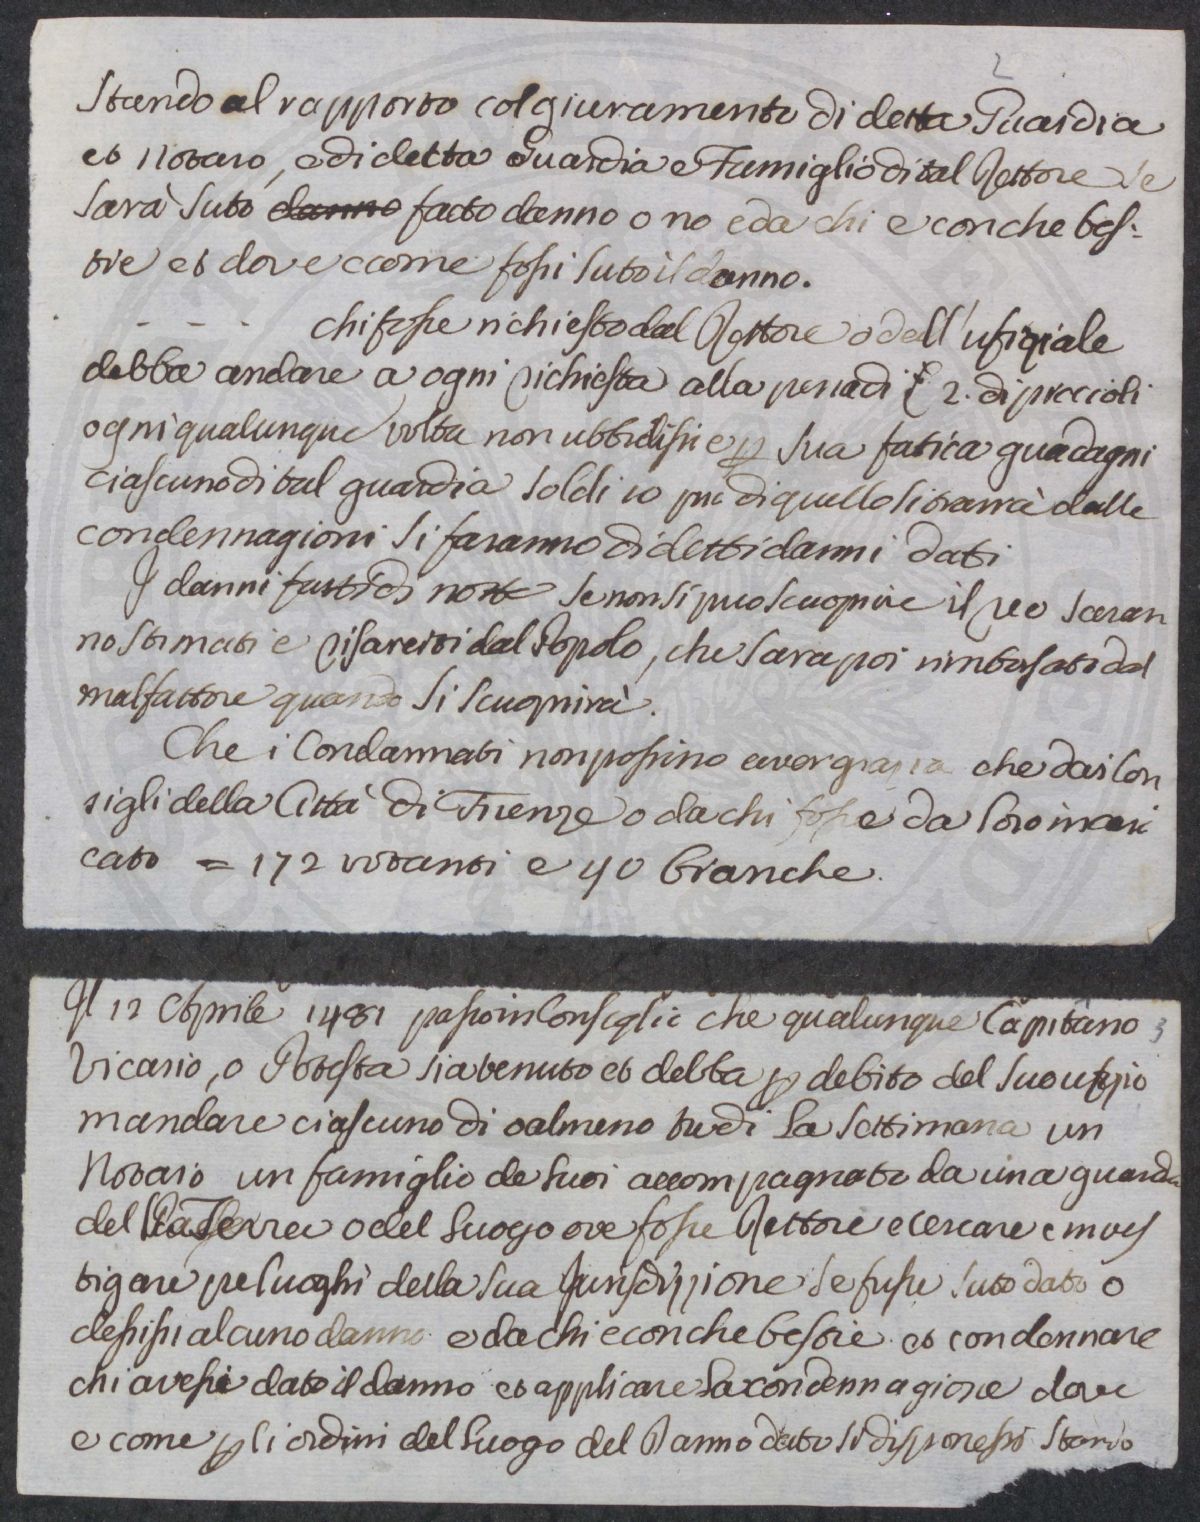 2
Stando al rapporto col giuramento di detta Guardia
et Notaro, e di detta Guardia e Famiglio di tal Rettore se
sarà suto danno fatto danno o no e da chi e con che bes:
tie et dove e come fossi suto il danno.
- - - chi fosse richiesto dal Rettore o dell'ufiziale
debba andare a ogni richiesta alla pena di £ 2. di piccioli
ogni qualunque volta non ubbidissi e p sua fatica guadagni
ciascuno di tal guardia soldi 10 di quello si trarrà dalle
condennagioni si faranno di detti danni dati
I danni fatti di notte se non si può scuoprire il reo saran
no stimati e risarciti dal Popolo, che sara poi rimborsato dal
malfattore quando si scuoprirà.
Che i Condannati non possino aver grazia che dai Con
sigli della Città di Firenze o da chi fosse da loro incari
cato = 172 votanti e 40 bianche.
Il 12 Aprile 1481 passò in Consiglio che qualunque Capitano
3
Vicario, o Potesta sia tenuto et debba p debito del suo ufizio
mandare ciascuno dì o almeno tre dì la settimana un
Notaro un famiglio de suoi accompagnato da una guardia
del Terra o del luogo ove fosse Rettore e cercare e inves
tigare pe luoghi della sua Jurisdizzione se fusse suto dato o
dessisi alcuno danno e da chi e con che bestie et condennare
chi avessi dato il danno et applicare la condennagione dove
e come p li ordini del luogo del Danno dato si disponessi Stando